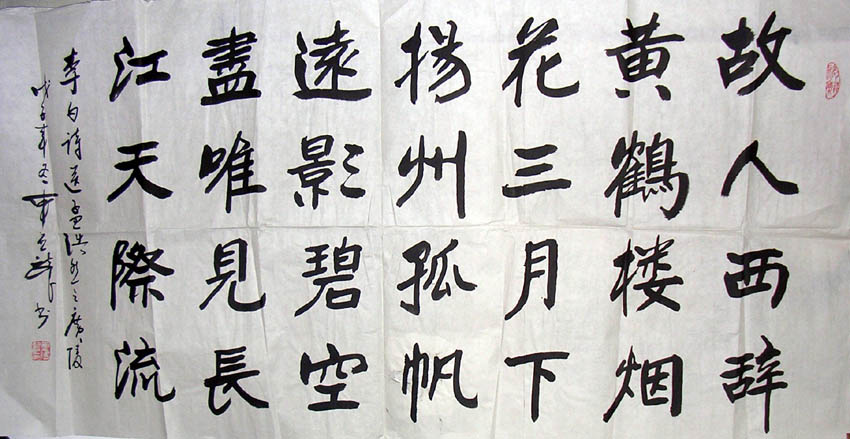 故人西辞
黄鹤楼烟
花三月下
揚州孤帆
遠影碧空
盡唯見長
江天際流
李白诗送孟浩然之广陵
戊子年冬
书